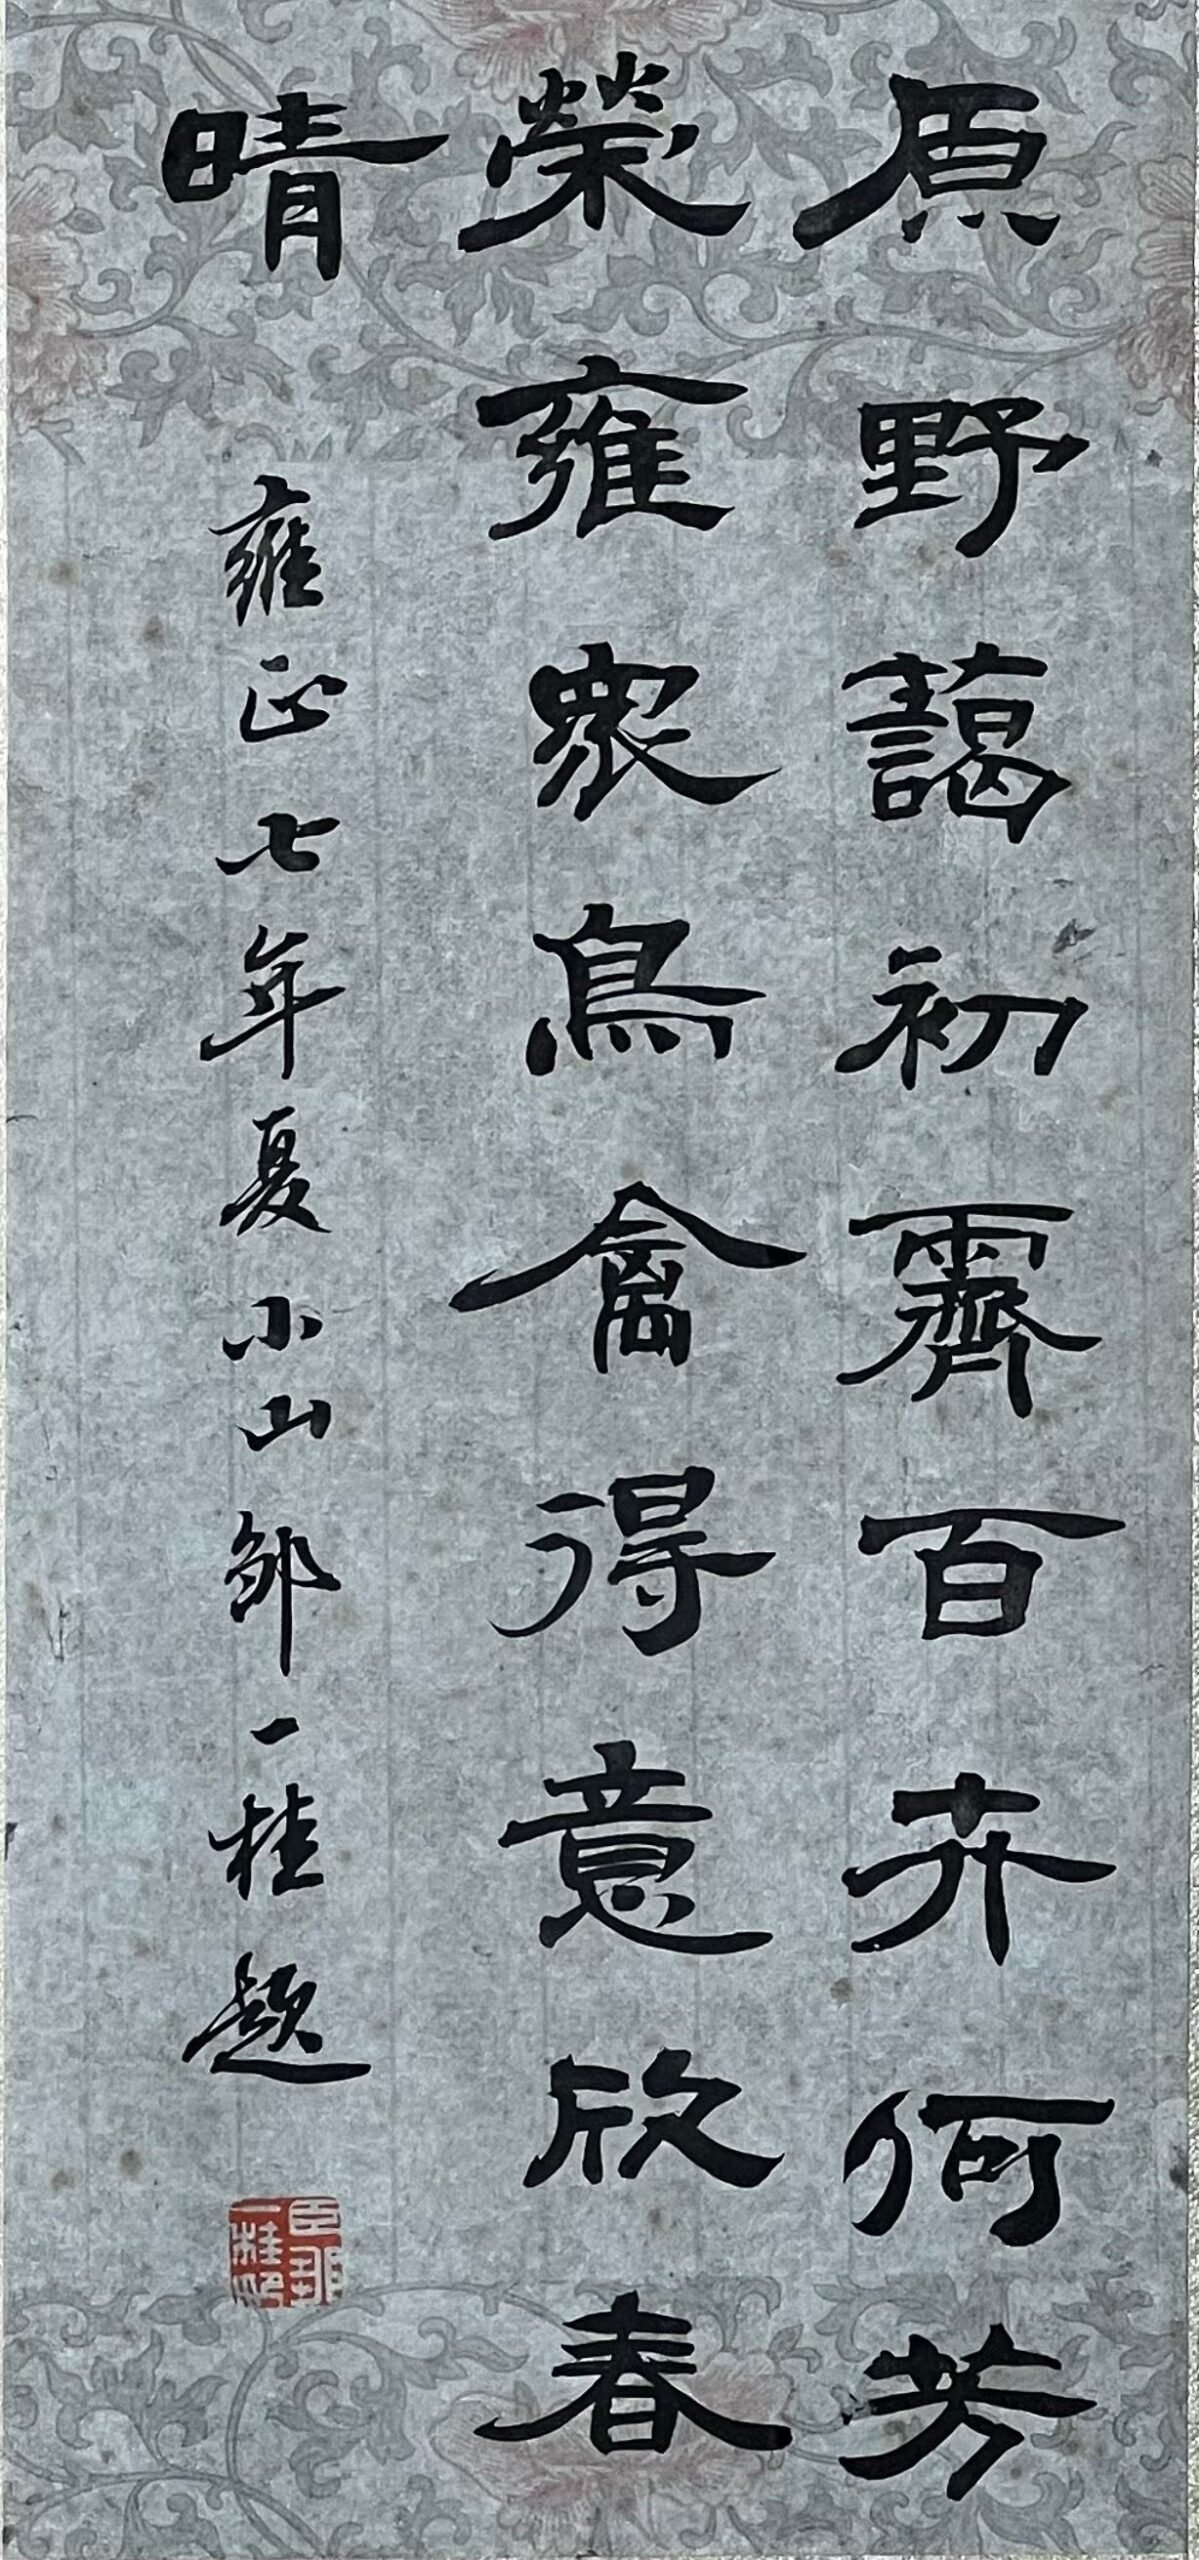 原野藹初霽百卉何芳
榮雍眾鳥禽得意欣春
晴
雍正七年夏小山鄒一桂題
臣鄒一桂印